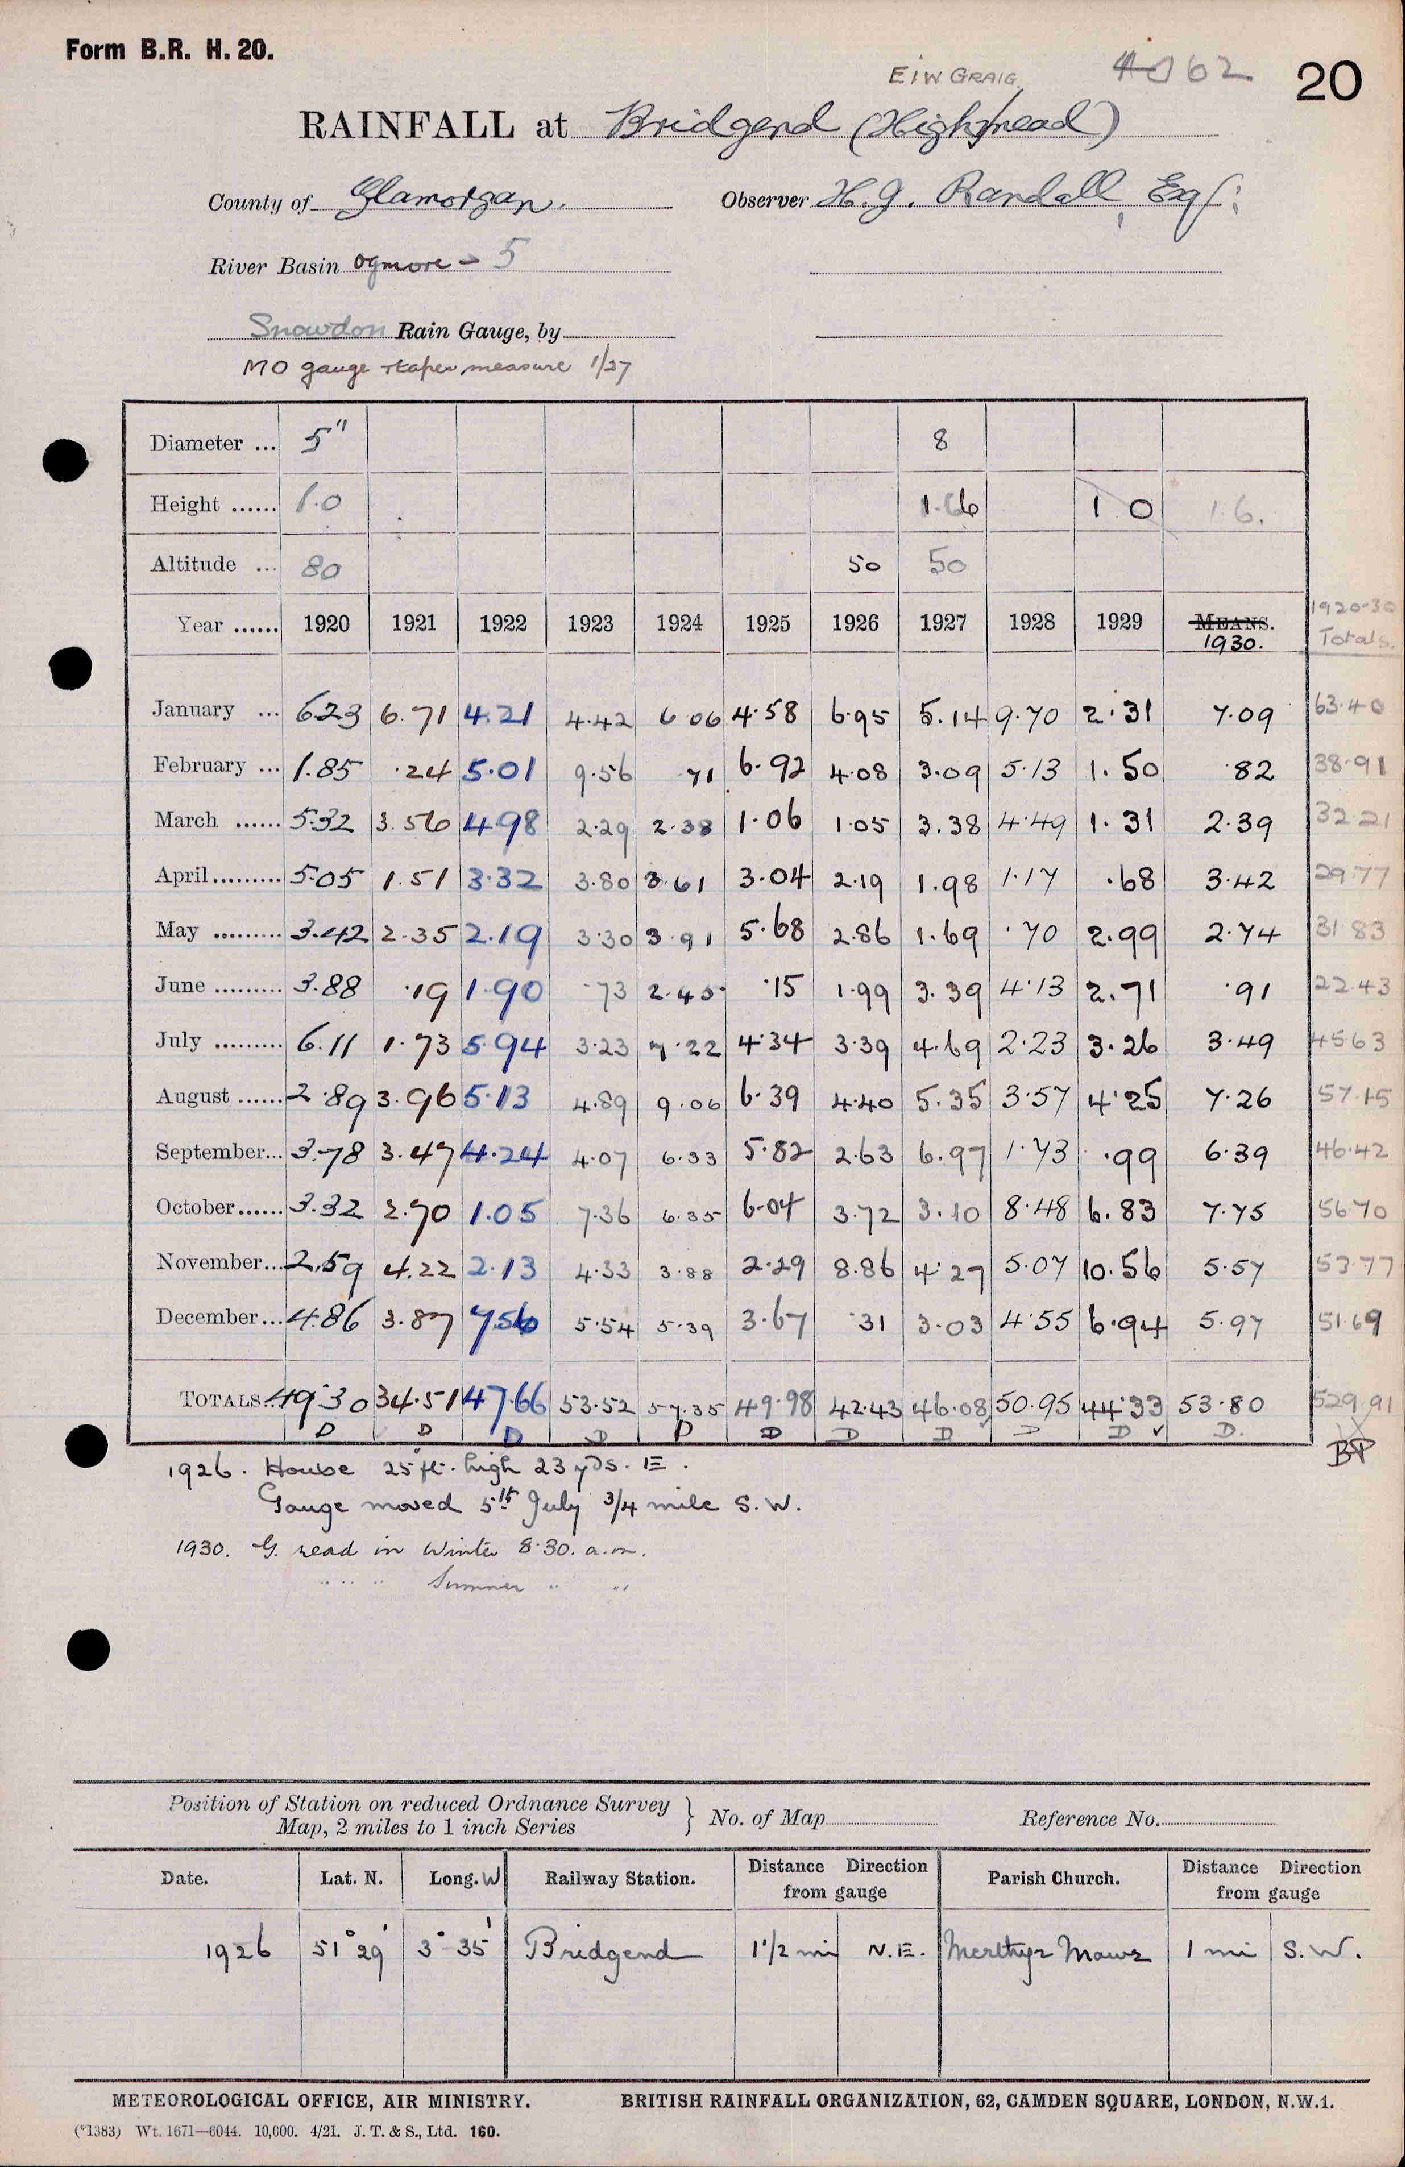 Form B.R. H. 20.
EIW GRAIG 4062 20
RAINFALL at Bridgend (Highmead)
County of Glamorgan. Observer H. J. Randall, Esq:
River Basin Ogmore - 5
Snowdon Rain Gauge, by
MO gauge + taper measure 1/27
Diameter ... 5" 8
Height ...... 1.0 1.66 1 0 1.6.
Altitude ... 80 50 50
Year ...... 1920 1921 1922 1923 1924 1925 1926 1927 1928 1929 MEANS. 1930. 1920-30 Totals.
January ... 6.23 6.71 4.21 4.42 6.06 4.58 6.95 5.14 9.70 2.31 7.09 63.40
February ... 1.85 .24 5.01 9.56 .71 6.92 4.08 3.09 5.13 1.50 .82 38.91
March ...... 5.32 3.56 4.98 2.29 2.38 1.06 1.05 3.38 4.49 1.31 2.39 32.21
April ......... 5.05 1.51 3.32 3.80 3.61 3.04 2.19 1.98 1.17 .68 3.42 29.77
May ......... 3.42 2.35 2.19 3.30 3.91 5.68 2.86 1.69 .70 2.99 2.74 31.83
June ......... 3.88 .19 1.90 .73 2.45 .15 1.99 3.39 4.13 2.71 .91 22.43
July ......... 6.11 1.73 5.94 3.23 7.22 4.34 3.39 4.69 2.23 3.26 3.49 45.63
August ...... 2.89 3.96 5.13 4.89 9.06 6.39 4.40 5.35 3.57 4.25 7.26 57.15
September... 3.78 3.47 4.24 4.07 6.33 5.82 2.63 6.97 1.73 .99 6.39 46.42
October...... 3.32 2.70 1.05 7.36 6.35 6.04 3.72 3.10 8.48 6.83 7.75 56.70
November... 2.59 4.22 2.13 4.33 3.88 2.29 8.86 4.27 5.07 10.56 5.57 53.77
December... 4.86 3.87 7.56 5.54 5.39 3.67 .31 3.03 4.55 6.94 5.97 51.69
TOTALS... 49.30 34.51 47.66 53.52 57.35 49.98 42.43 46.08 50.95 44.33 53.80 529.91
D D D D D D D D D D D. BP
1926. House 25 ft. high 23 yds. E.
Gauge moved 5th July 3/4 mile S.W.
1930. G. read in Winter 8.30. a.m.
" " " Summer " "
Position of Station on reduced Ordnance Survey } No. of Map Reference No.
Map, 2 miles to 1 inch Series
Date. Lat. N. Long. W Railway Station. Distance Direction from gauge Parish Church. Distance Direction from gauge
1926 51° 29' 3° 35' Bridgend 1 1/2 mi N.E. Merthyr Mawr 1 mi S.W.
METEOROLOGICAL OFFICE, AIR MINISTRY. BRITISH RAINFALL ORGANIZATION, 62, CAMDEN SQUARE, LONDON, N.W.1.
(*1383) Wt. 1671—6044. 10,000. 4/21. J. T. & S., Ltd. 160.